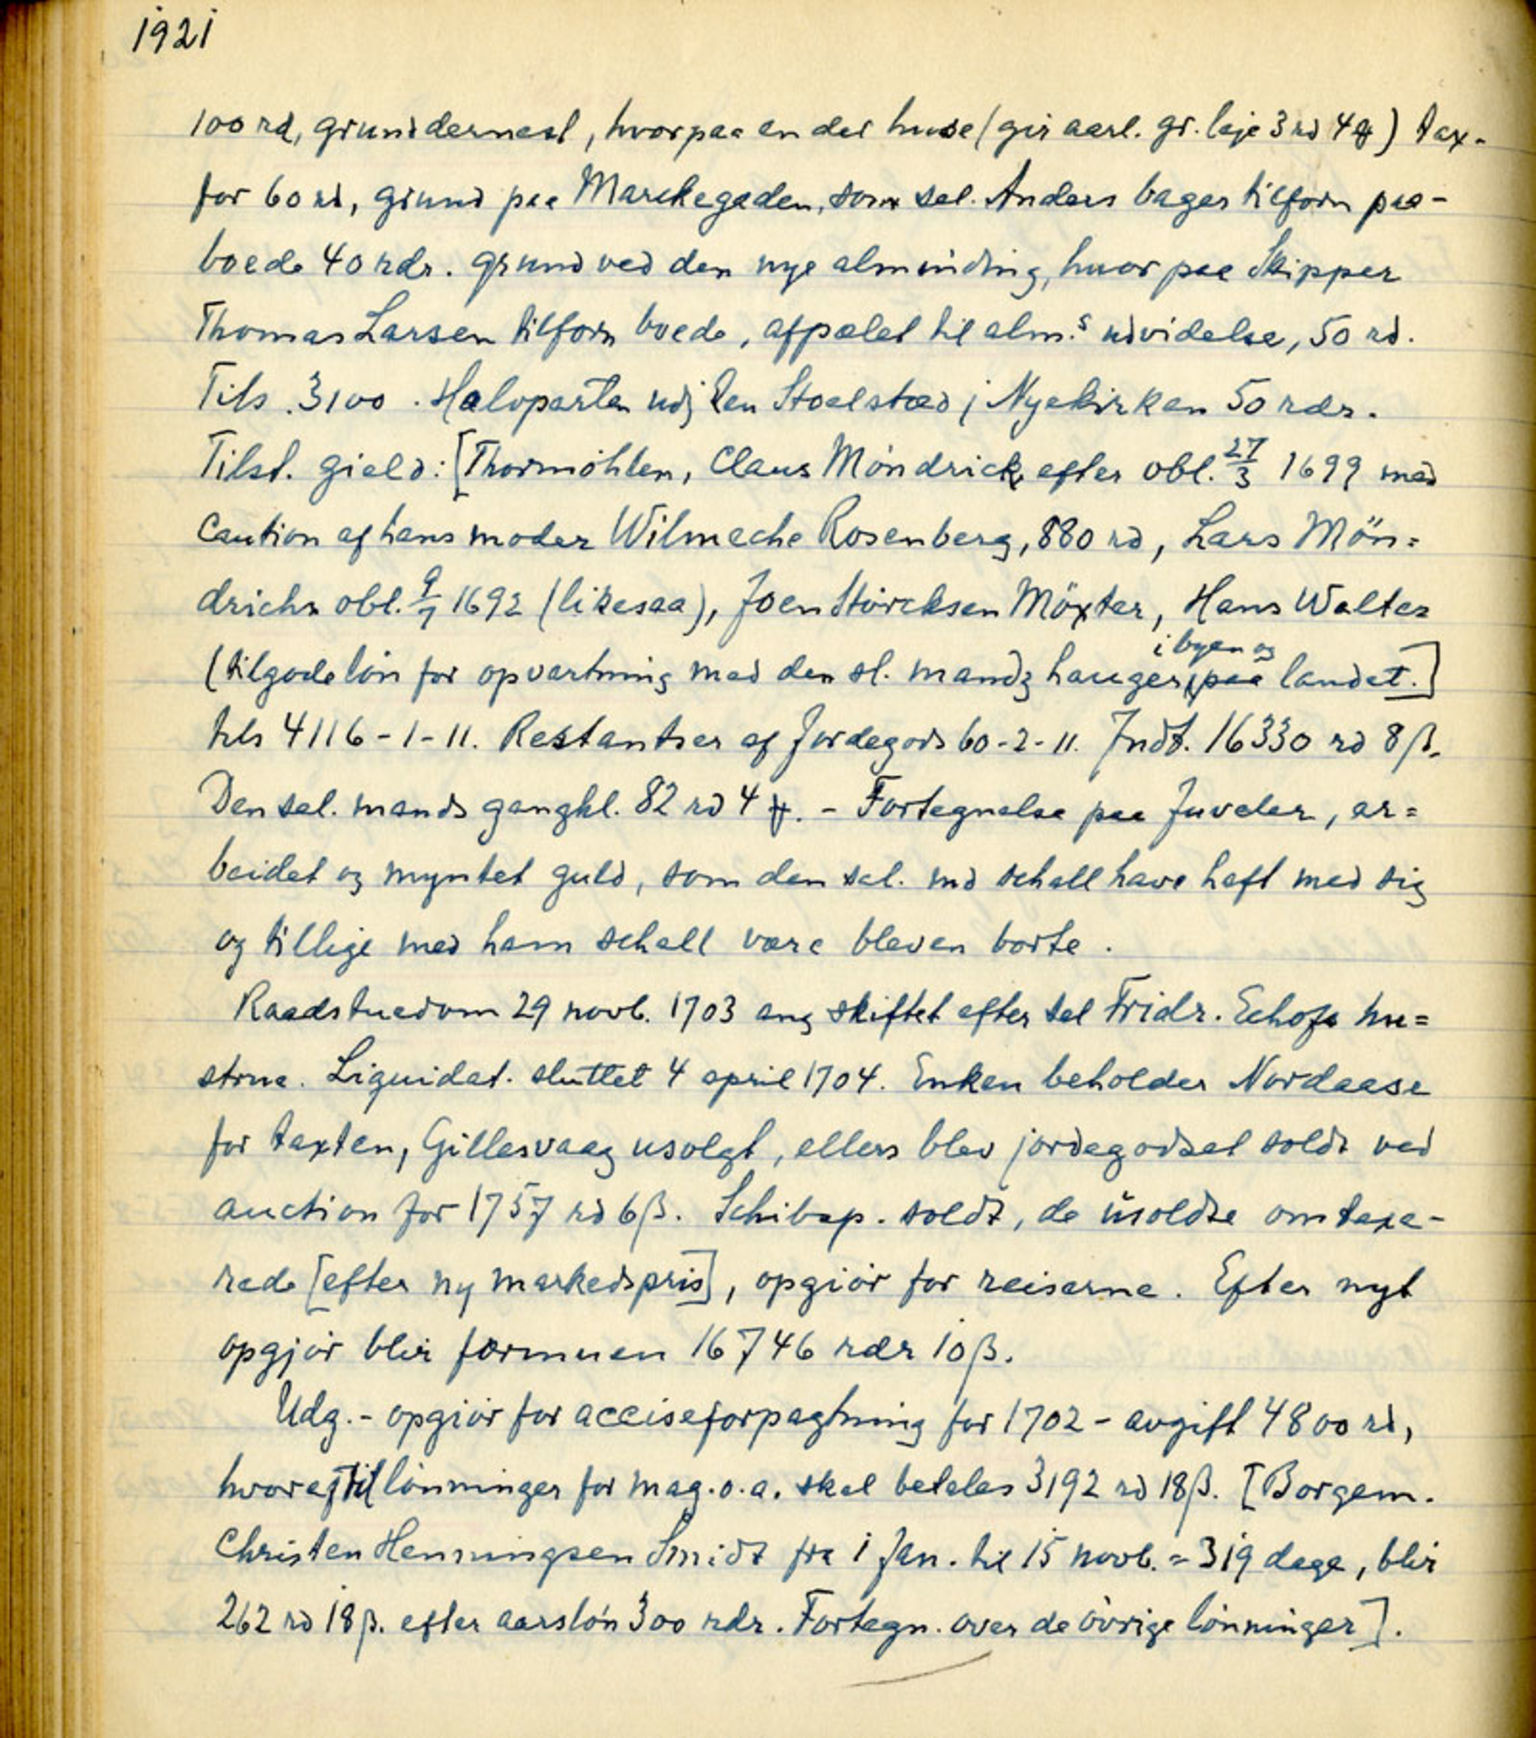 1921
100 rd, grund dernest, hvorpaa en del huse (gir aarl. gr. leje 3 rd 4 ) tax-
for 60 rd, grund paa Marckegaden, som sal. Anders bager tilforn paa-
boede 40 rdr. grund ved den nye alminding, hvor paa Skipper
Thomas Larsen tilforn boede, afpælet til alm.s udvidelse, 50 rd.
Tils. 3100. Halvparten udj den Stoelstæd j Nyekirken 50 rdr.
Tilst. gield: [Thormöhlen, Claus Möndrick efter obl. 27/3 1699 med
Caution af hans moder Wilmeche Rosenberg, 880 rd, Lars Mön=
drichs obl. 9/7 1692 (likesaa), Joen Störcksen Möxter, Hans Walter
(tilgode lön for opvartning med den sl. mandz hauger i byen og paa landet.]
tils 4116-1-11. Restantser af Jordegods 60-2-11. Indt. 16330 rd 8 ß.
Den sal. mands gangkl. 82 rd 4 . - Fortegnelse paa Juveler, ar=
beidet og myntet guld, som den sal. md schall have haft med sig
og tillige med ham schall være bleven borte.
Raadstuedom 29 novb. 1703 ang skiftet efter sal Fridr. Echofs hu=
strue. Liquidat. sluttet 4 april 1704. Enken beholder Nordaase
for taxten, Gillesvaag usolgt, ellers blev jordegodset soldt ved
auction for 1757 rd 6 ß. Schibsp. soldt, de üsoldte omtaxe-
rede [efter ny markedspris], opgiör for reiserne. Efter nyt
opgjör blir formuen 16746 rdr 10 ß.
Udg. - opgiör for acciseforpagtning for 1702 - avgift 4800 rd,
hvoraf til lönninger for mag. o.a. skal betales 3192 rd 18 ß. [Borgem.
Christen Henningsen Smidt fra 1 Jan. til 15 novb. = 319 dage, blir
262 rd 18 ß. efter aarslön 300 rdr. Fortegn. over de övrige lönninger].